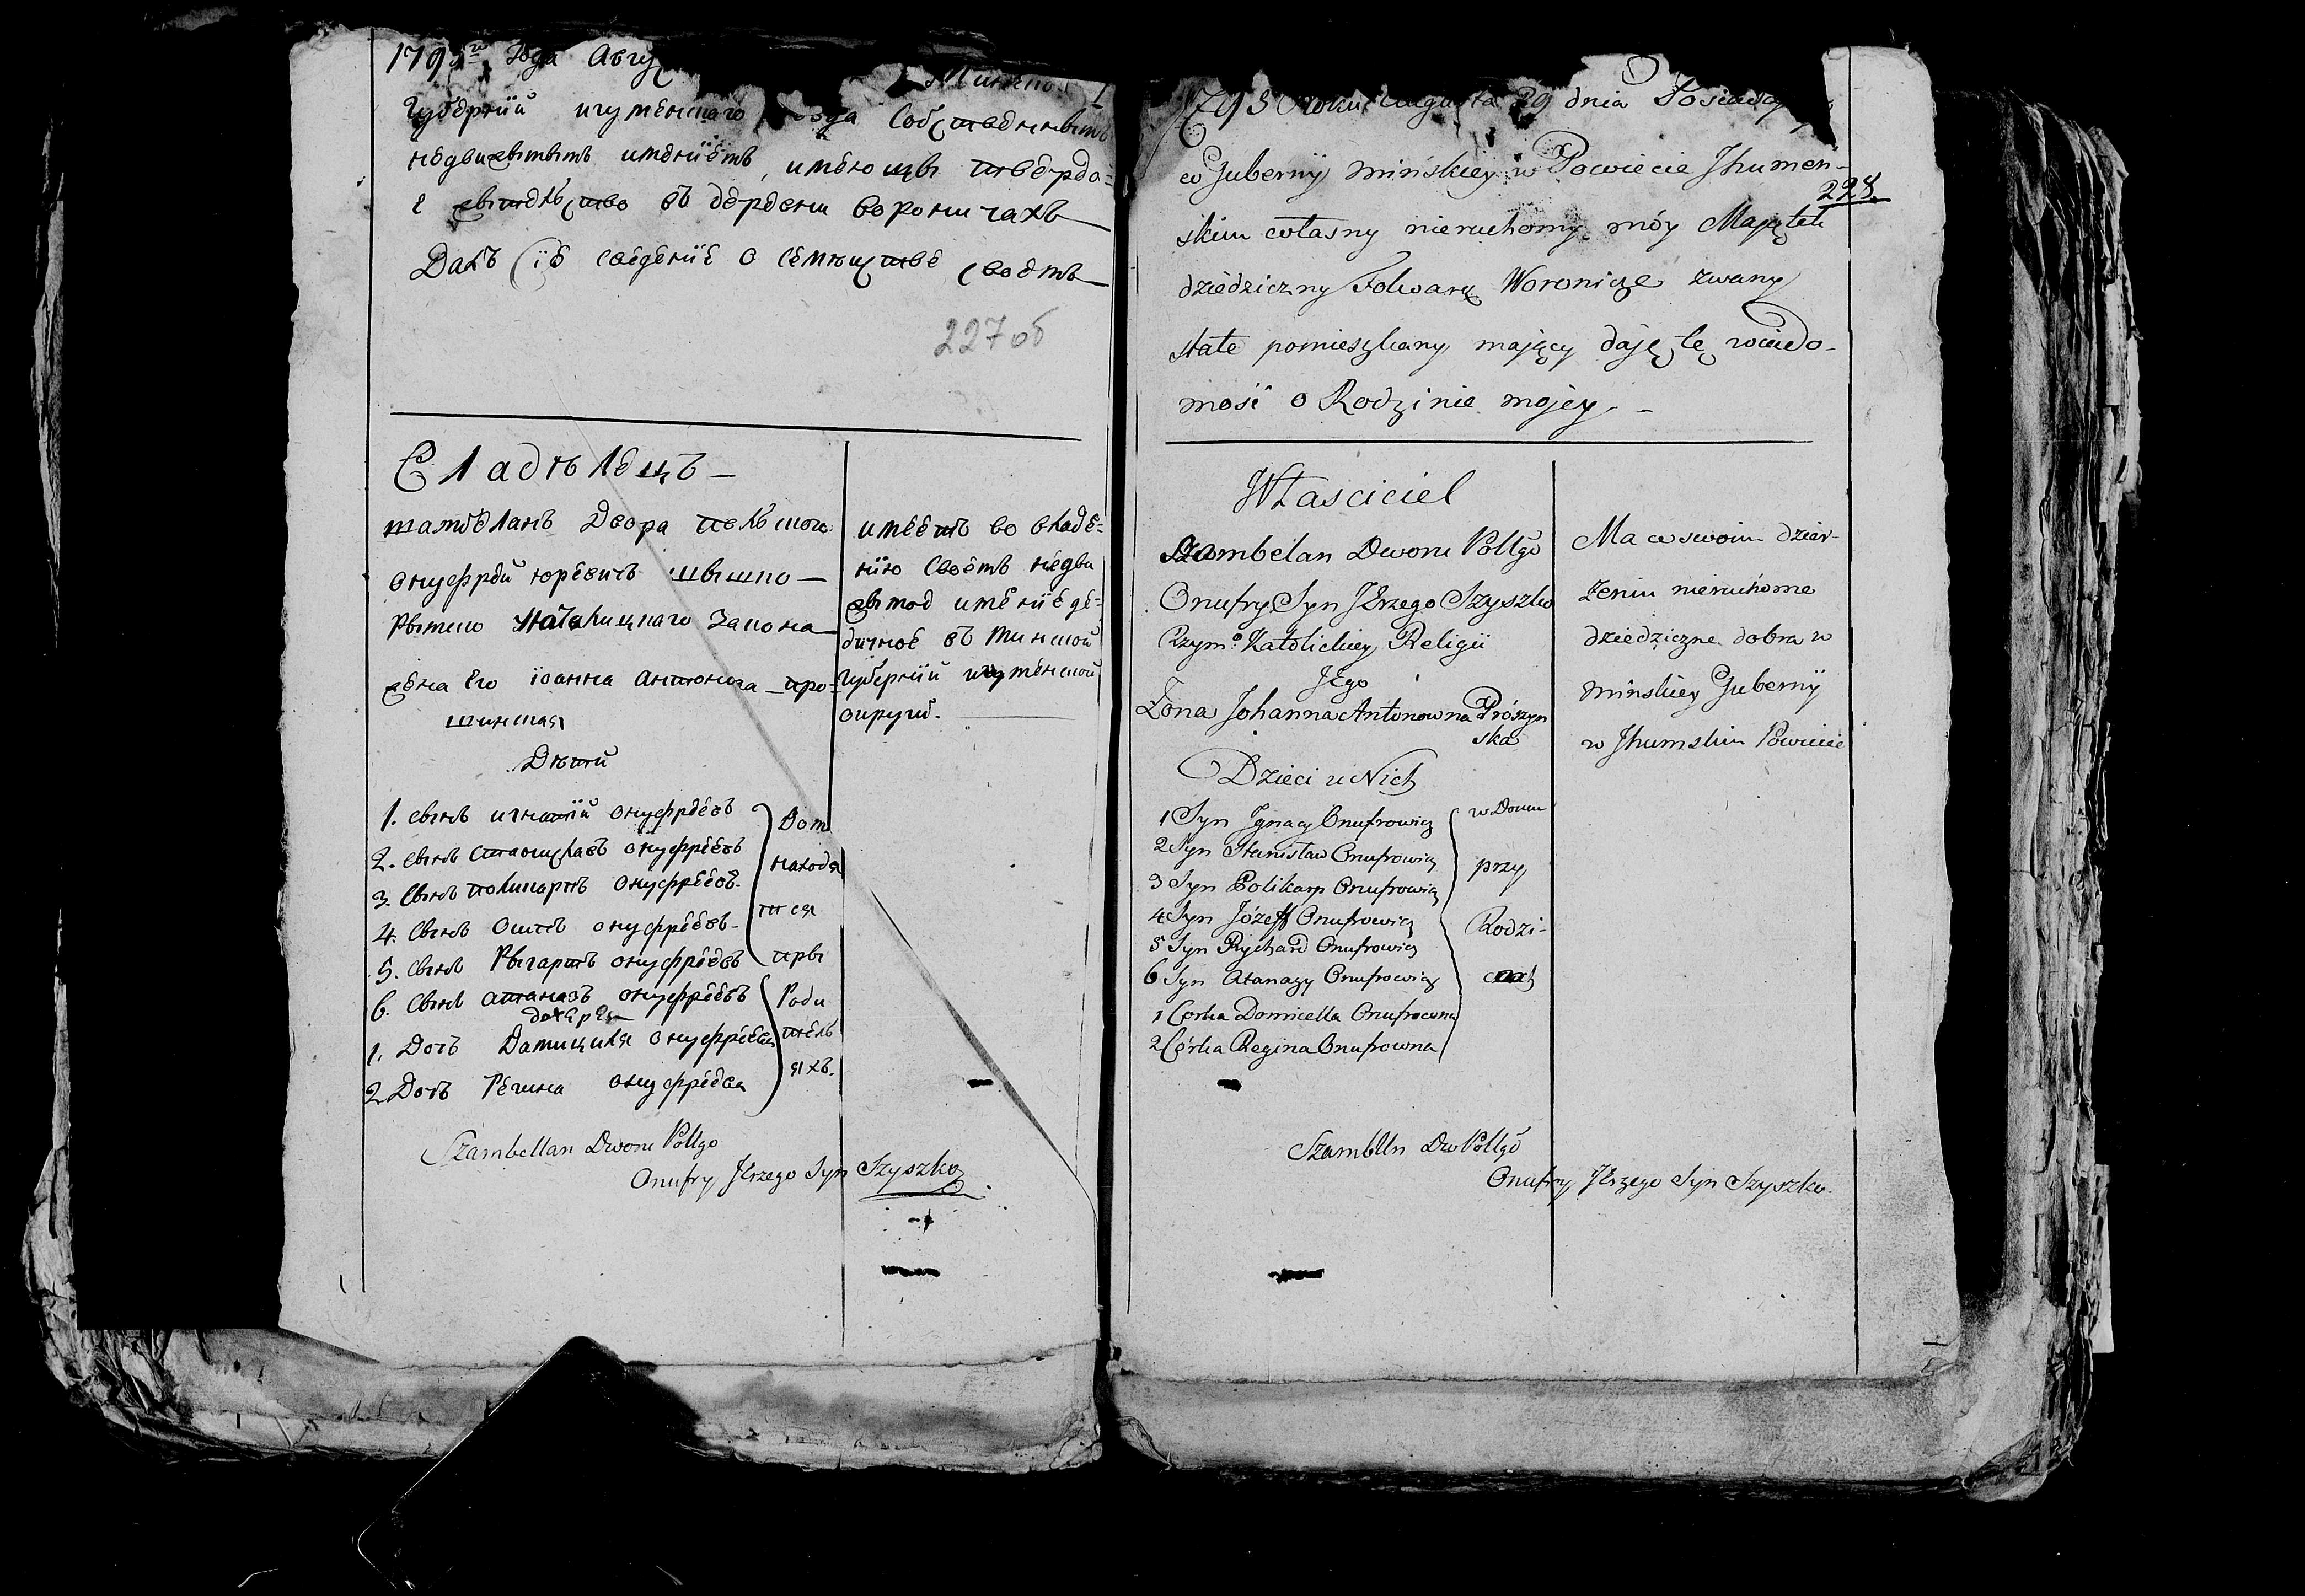 1795го Года Авгу
Минско
Губернии игуменского собственнымъ
недвижымымъ имениемъ, имеющы твердо=
е жытелство въ деревни вороничахъ
Далъ сіе сведение о семействе своемъ
227об
Владѣлецъ
шамбеланъ Двора полского
онуфрей юревичъ шышко
Рымско Католицкаго Закона
жена Его іоанна антонова про=
шинская
Дѣти
1. сынъ игнатій онуфреевъ
2. сынъ станиславъ онуфреевъ
3. сынъ поликарпъ онуфреевъ
4. сынъ осипъ онуфреевъ
5. сынъ Рыгартъ онуфреевъ
6. сынъ атаназъ онуфреевъ
дочеря
1. Дочъ Дамицеля онуфреева
2 Дочъ Регина онуфреева
Дом
находя
тся
пры
Роди
тель
яхъ.
имеетъ во владе=
нию своемъ недви
жымое имение де=
дичное въ минской
губернии игуменской
округи.
Szambellan Dworu Pollgo
Onufry JErzego Syn Szyszko
1795 Roku Augusta 29 dnia
w Gubernÿ Mińskiey w Powiecie Jhumen-
228
skim własny nieruchomy móy Majątek
dziedziczny Folwark Woronicze zwany
state pomieszkany mający daję tę wiado-
mość o Rodzinie mojey
Własciciel
Szambelan Dworu Pollgo
Onufry Syn JErzego Szyszko
Rzymo Katolickiey Religii
JEgo
Żona Johanna Antonowna Prószyn
ska
Dzieci u Nich
1 Syn Jgnacy Onufrowicz
2 Syn Stanisław Onufrowicz
3 Syn Polikarp Onufrowicz
4 Syn Józeff Onufrowicz
5 Syn Rychard Onufrowicz
6 Syn Atanazy Onufrowicz
1 Corka Domicella Onufrowna
2 Córka Regina Onufrowna
w Domu
przy
Rodzi-
cach
Ma w swoim dzier-
żeniu nieruchome
dziedziczne dobra w
Minskiey Guberniÿ
w Jhumskim Powiecie
Szamblln Dw Pollgo
Onufry JErzego Syn Szyszko.